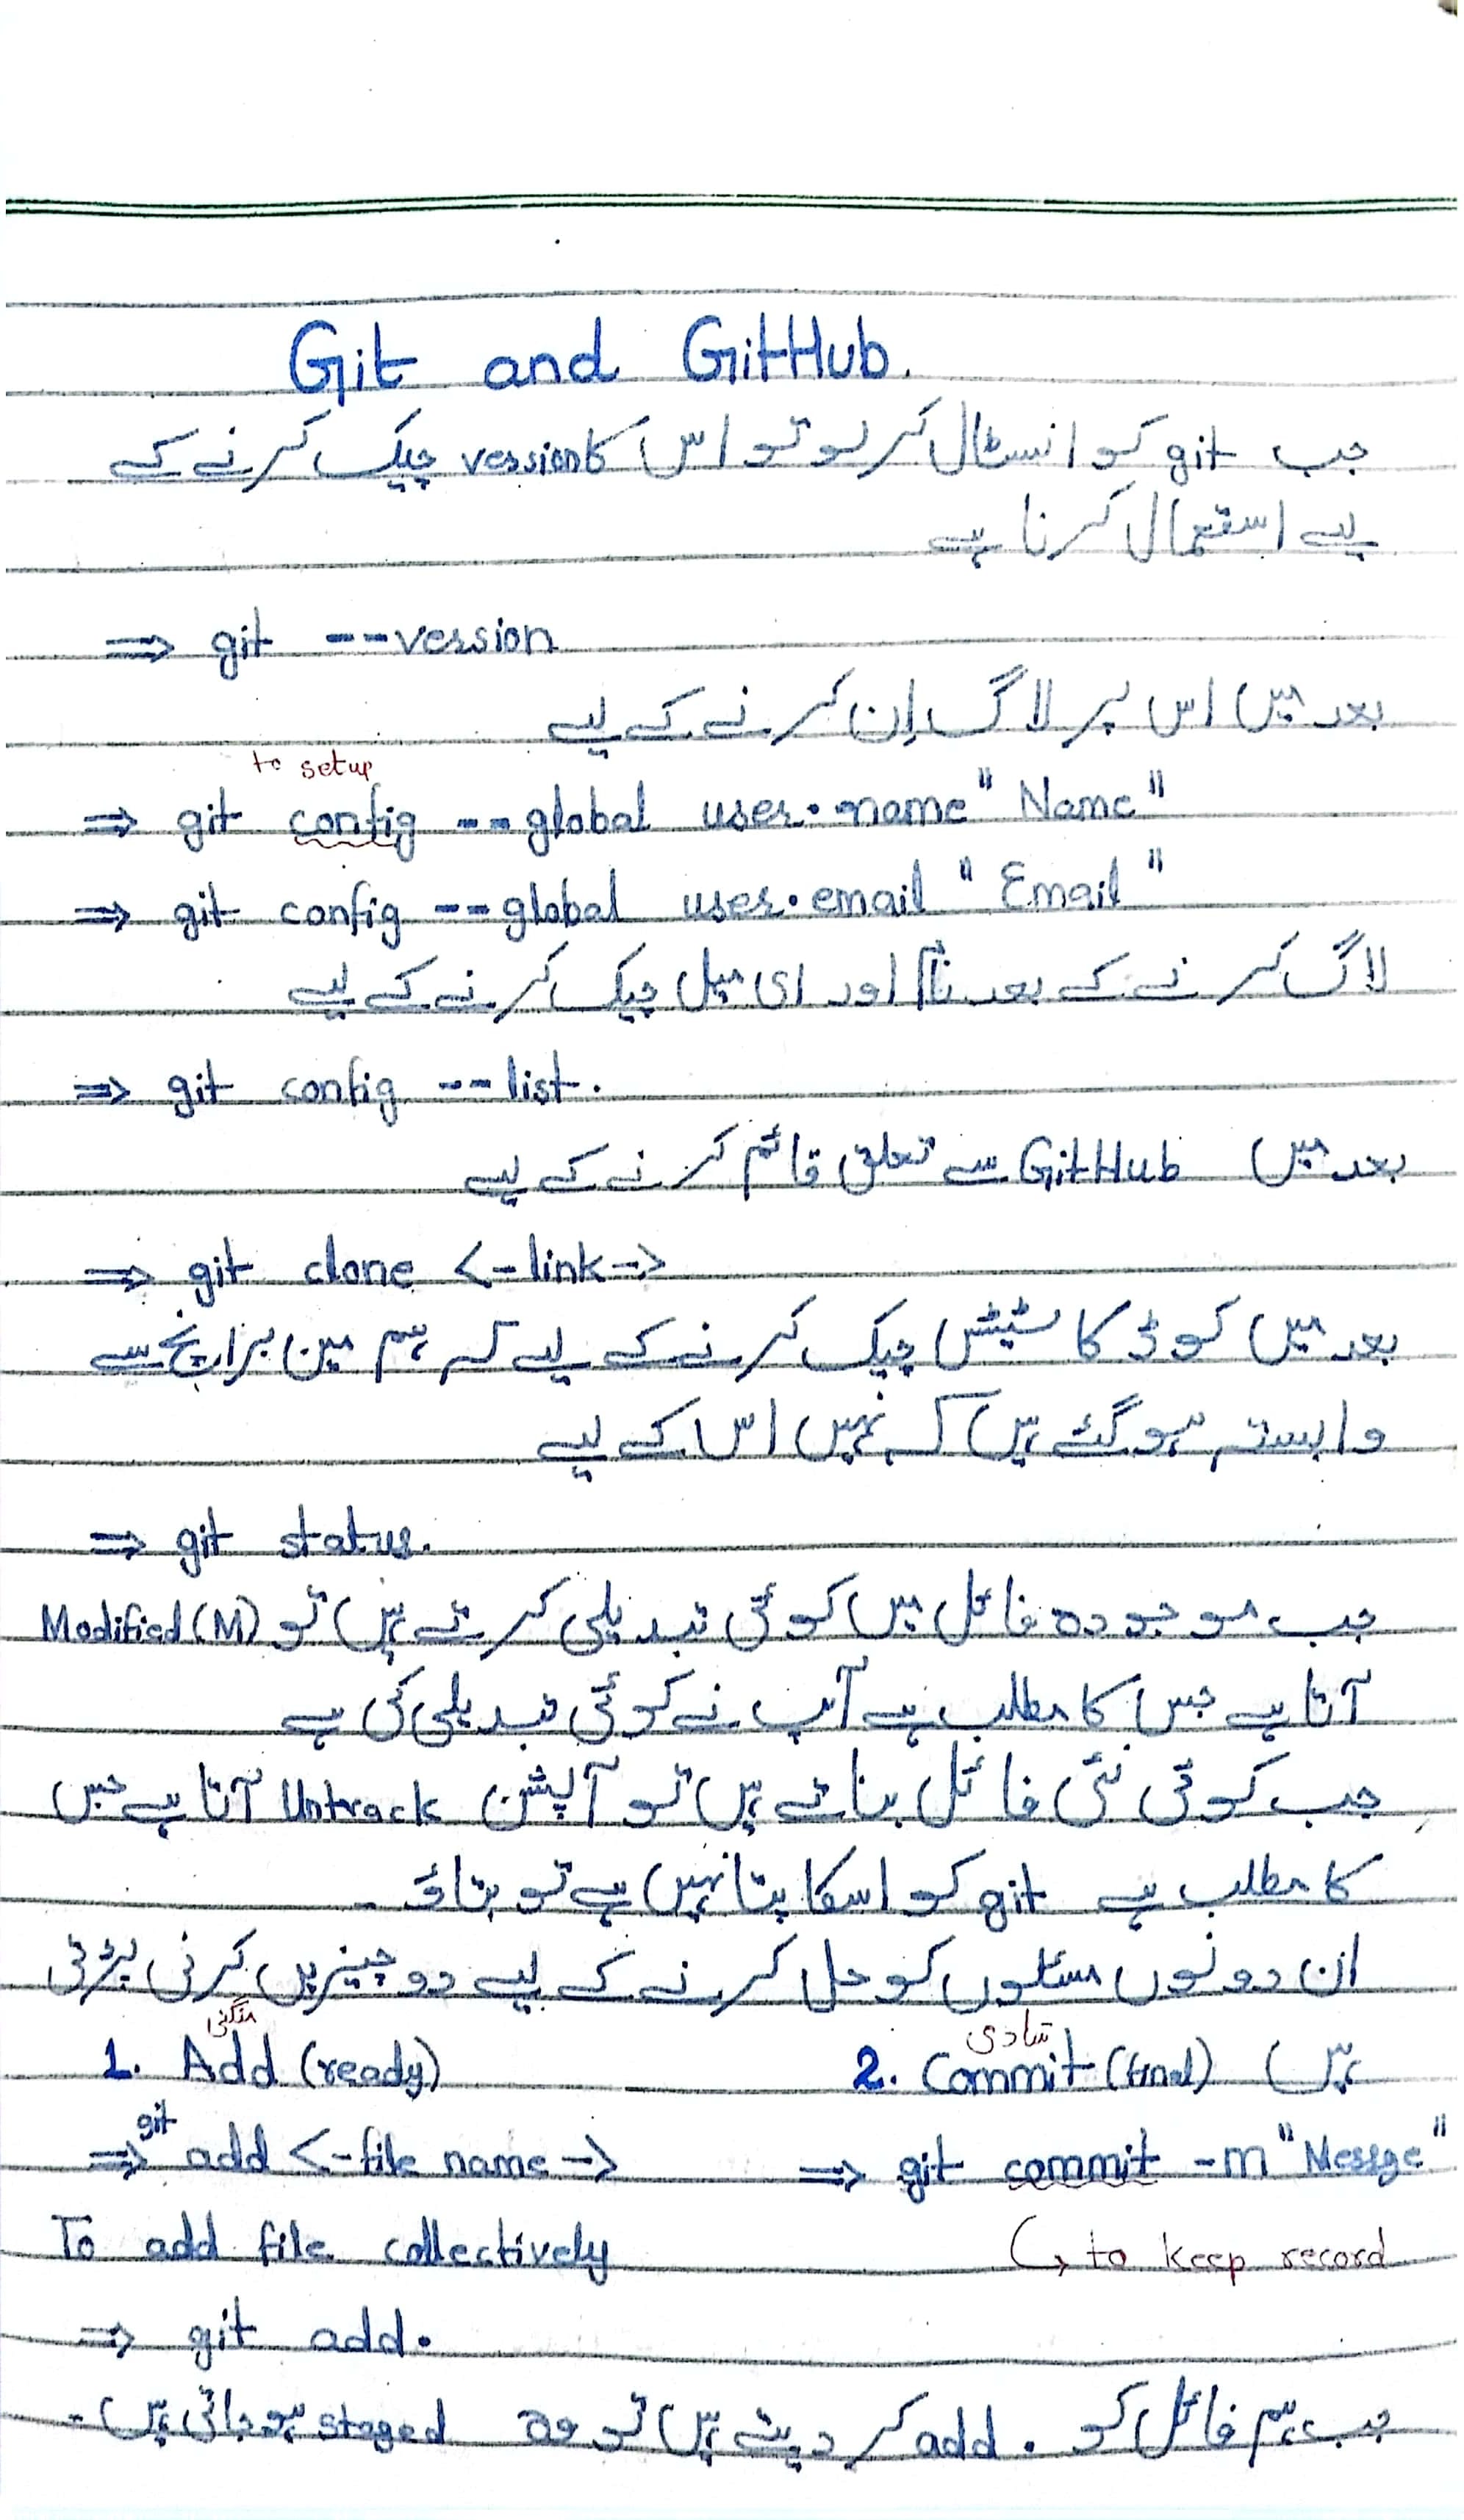 Git and GitHub.
جب git کو انسٹال کر لو تو اس کا version چیک کرنے کے
لیے استعمال کرنا ہے
⇒ git --version
بعد میں اس پر لاگ اِن کرنے کے لیے
to setup
⇒ git config --global user.name "Name"
⇒ git config --global user.email "Email"
لاگ کرنے کے بعد نام اور ای میل چیک کرنے کے لیے
⇒ git config --list.
بعد میں GitHub سے تعلق قائم کرنے کے لیے
⇒ git clone <-link->
بعد میں کوڈ کا سٹیٹس چیک کرنے کے لیے کہ ہم مین برانچ سے
وابستہ ہو گئے ہیں کہ نہیں اس کے لیے
⇒ git status.
جب موجودہ فائل میں کوئی تبدیلی کرتے ہیں تو Modified (M)
آتا ہے جس کا مطلب ہے آپ نے کوئی تبدیلی کی ہے
جب کوئی نئی فائل بناتے ہیں تو آپشن Untrack آتا ہے جس
کا مطلب ہے git کو اسکا پتا نہیں ہے تو بتاؤ ۔
ان دونوں مسئلوں کو حل کرنے کے لیے دو چیزیں کرنی پڑتی
منگنی شادی
1. Add (ready) 2. Commit (final) ہیں
⇒ git add <-file name-> ⇒ git commit -m "Messge"
To add file collectively ↪ to keep record
⇒ git add.
جب ہم فائل کو . add کر دیتے ہیں تو وہ staged ہو جاتی ہیں ۔